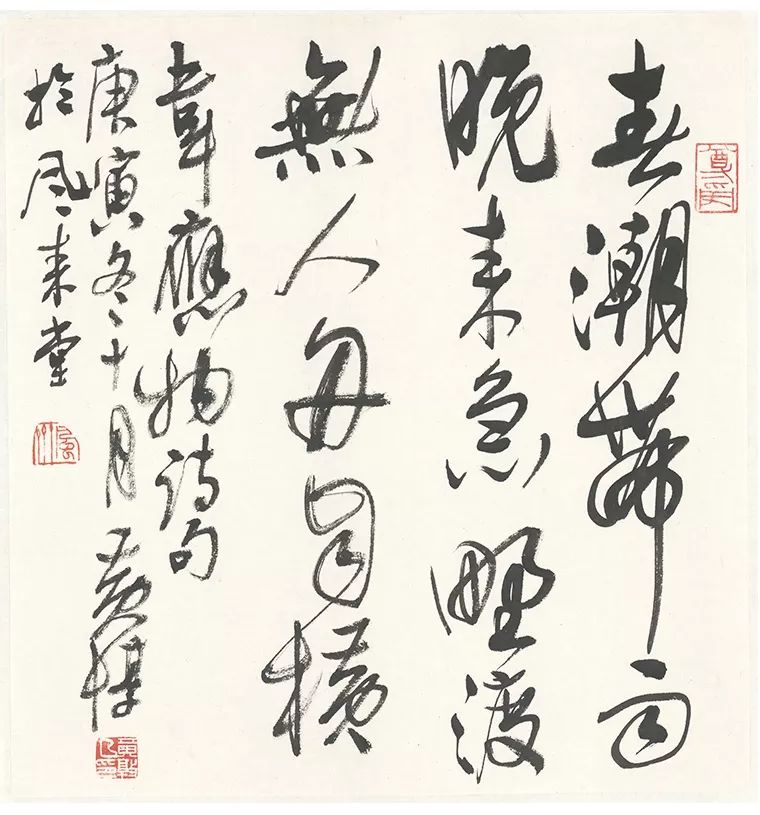 春潮帶雨
晚来急野渡
無人舟自横
韋應物詩句
庚寅冬十月黄惇
於風来堂